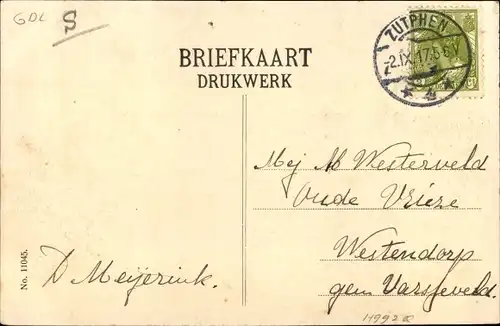 GDL
S
ZUTPHEN
2.IX.17.5-6V
BRIEFKAART
DRUKWERK
Mej Ab Westerveld
Oude Vrieze
Westendorp
gem Varsseveld.
D Meijerink.
No. 11045.